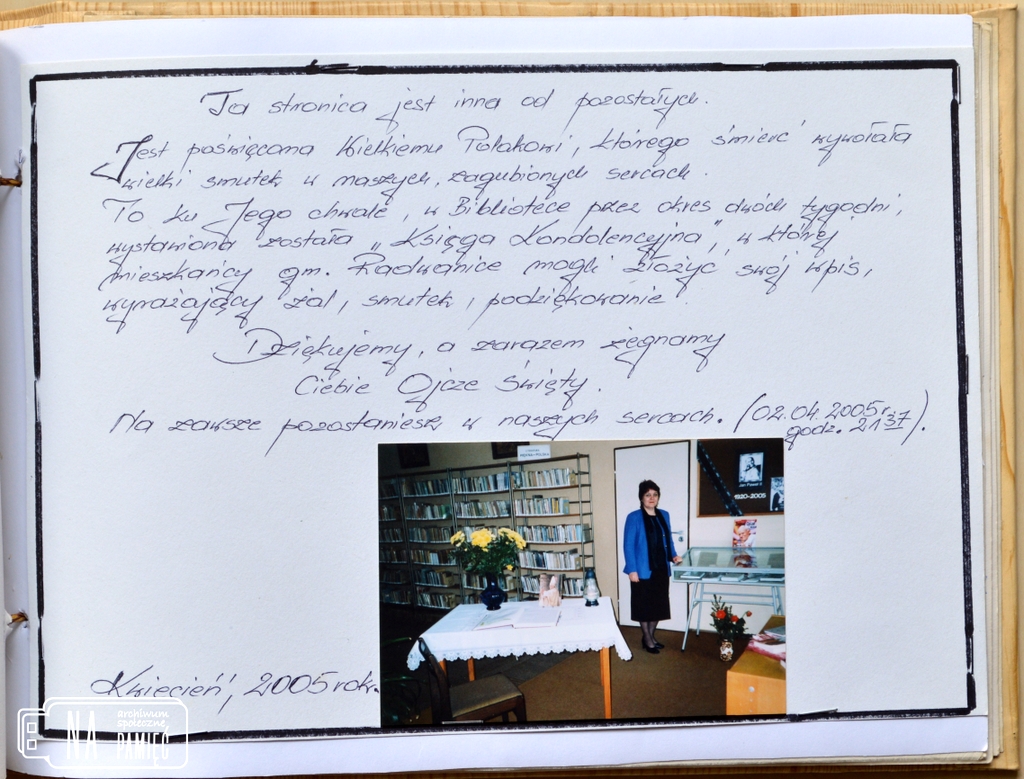 Ta stronica jest inna od pozostałych.
Jest poświęcona Wielkiemu Polakowi, którego śmierć wywołała
wielki smutek w naszych, zagubionych sercach.
To ku Jego chwale, w Bibliotece przez okres dwóch tygodni,
wystawiona została „Księga Kondolencyjna", w której
mieszkańcy gm. Radwanice mogli złożyć swój wpis,
wyrażający żal, smutek, podziękowanie.
Dziękujemy, a zarazem żegnamy
Ciebie Ojcze Święty.
Na zawsze pozostaniesz w naszych sercach. (02.04.2005r.
godz. 21 37).
Jan Paweł II
1920-2005
Kwiecień, 2005 rok.
NA
archiwum
społeczne,
PAMIĘĆ